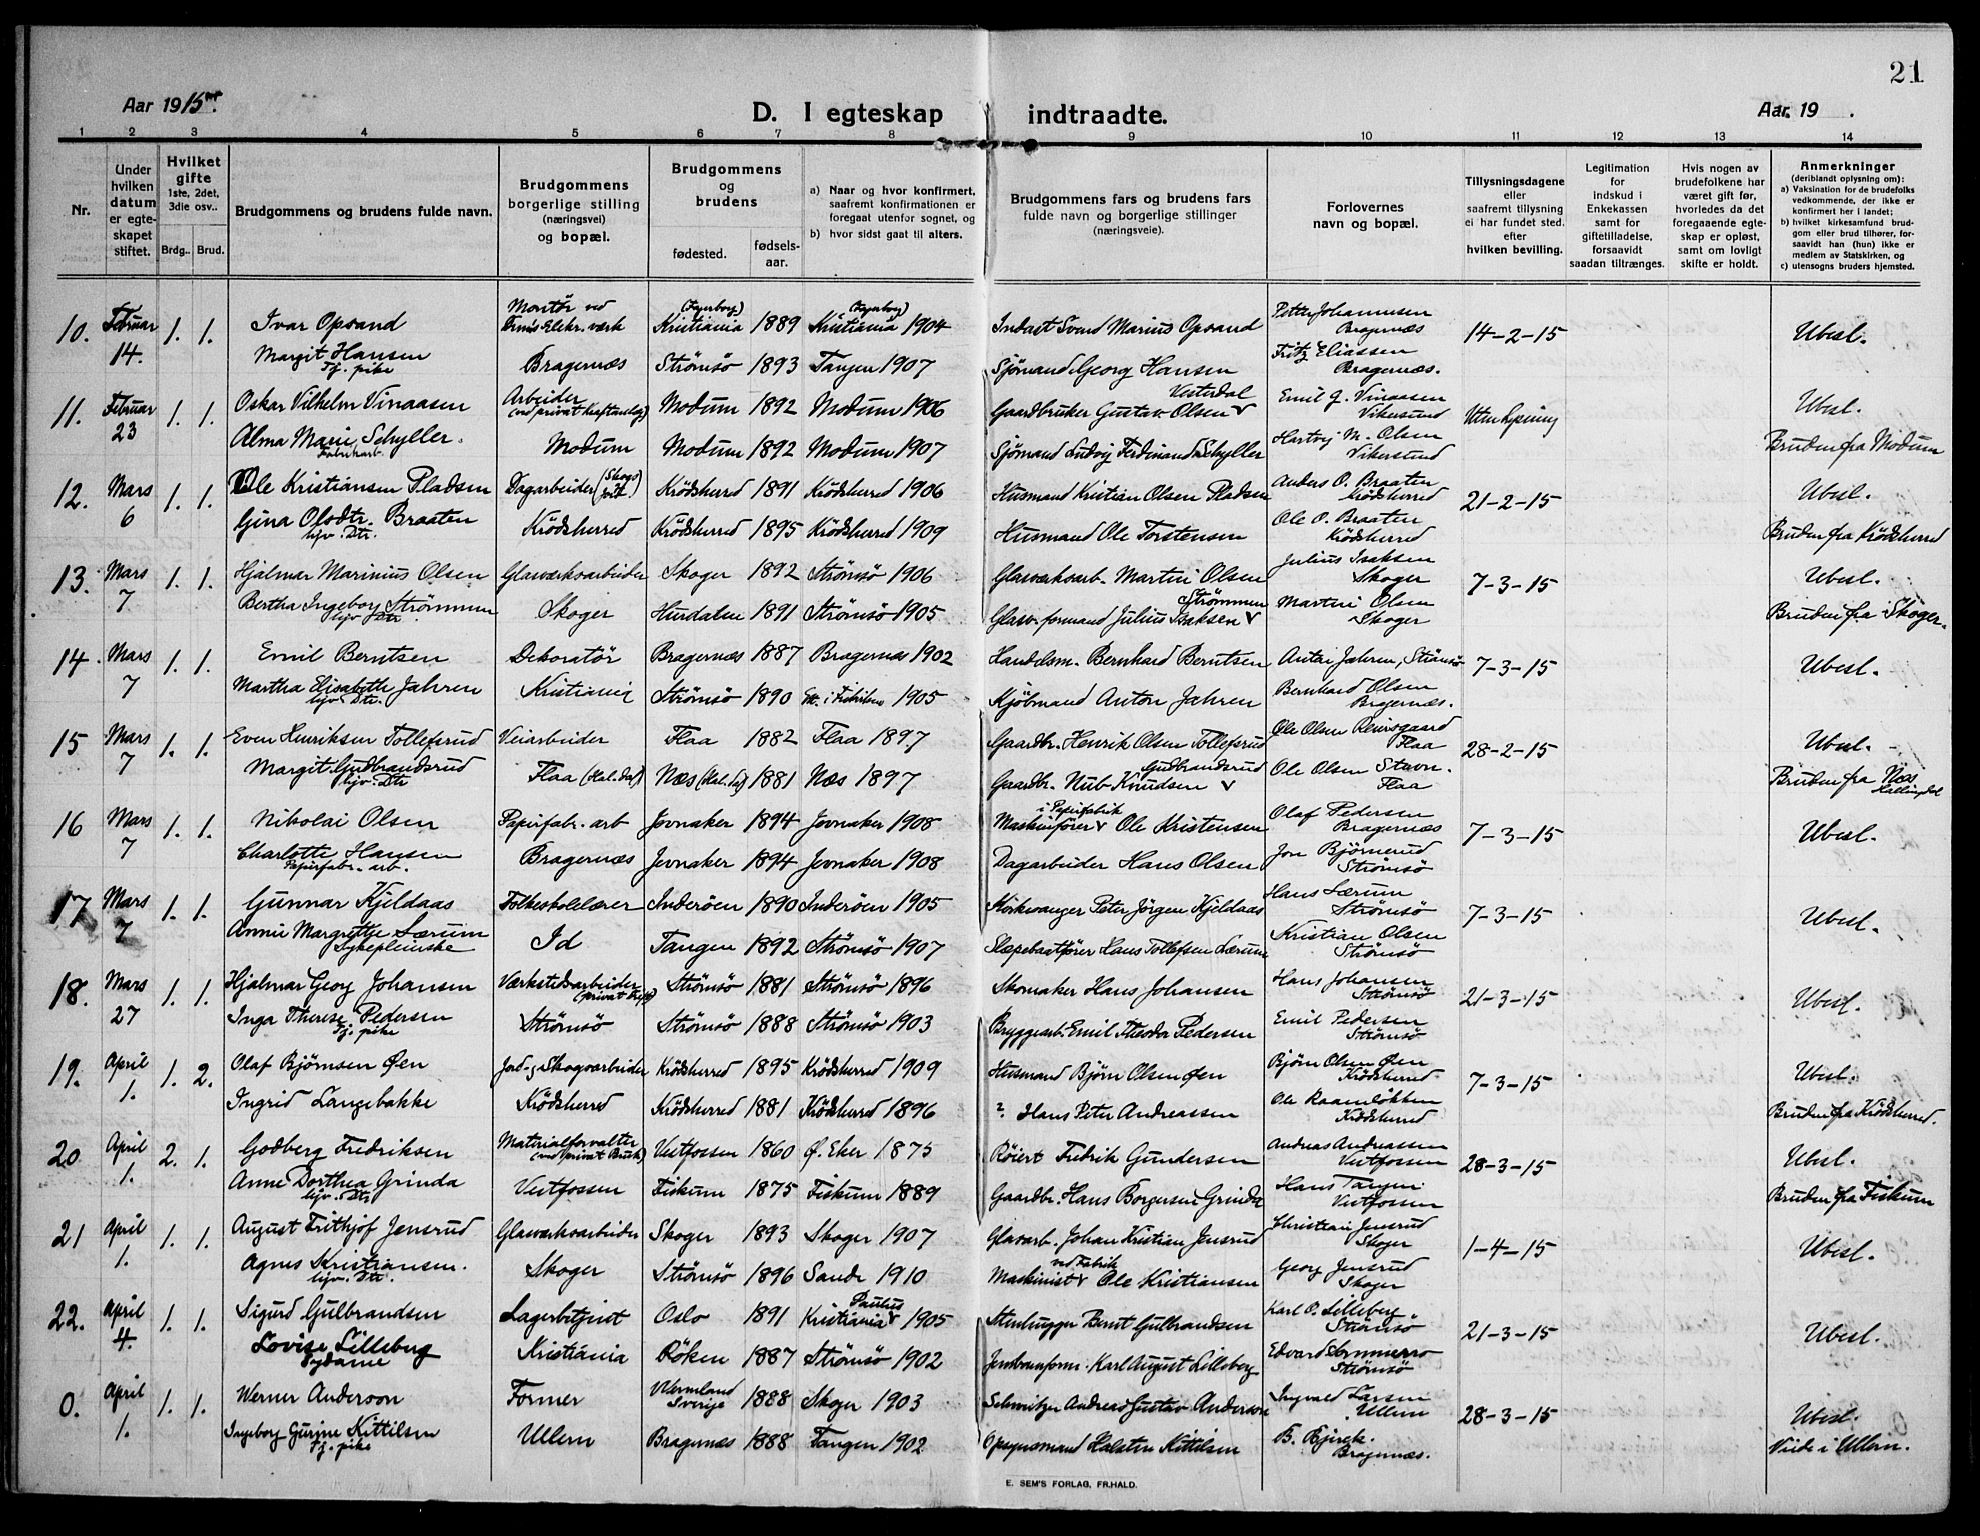 21
Aar 1915
D. I egteskap indtraadte.
Aar 19 .
1 2 3 4 5 6 7 8 9 10 11 12 13 14
Nr.
Under hvilken datum er egteskapet stiftet.
Hvilket gifte 1ste, 2det, 3die osv..
Brdg.. Brud.
Brudgommens og brudens fulde navn.
Brudgommens borgerlige stilling (næringsvei) og bopæl.
Brudgommens og brudens
fødested. fødsels-aar.
a) Naar og hvor konfirmert, saafremt konfirmationen er foregaat utenfor sognet, og
b) hvor sidst gaat til alters.
Brudgommens fars og brudens fars fulde navn og borgerlige stillinger (næringsveie).
Forlovernes navn og bopæl.
Tillysningsdagene eller saafremt tillysning ei har fundet sted. efter hvilken bevilling.
Legitimation for indskud i Enkekassen samt for giftetilladelse, forsaavidt saadan tiltrænges.
Hvis nogen av brudefolkene har været gift før, hvorledes da det foregaaende egteskap er opløst, samt om lovligt skifte er holdt.
Anmerkninger (deriblandt oplysning om):
a) Vaksination for de brudefolks vedkommende, der ikke er konfirmert her i landet;
b) hvilket kirkesamfund brudgom eller brud tilhører, forsaavidt han (hun) ikke er medlem av Statskirken, og
c) utensogns bruders hjemsted.
10. Februar 14. 1. 1. Ivar Opsand Montør ved Elekr. værk (Fagerborg) Kristiania 1889 (Fagerborg) Kristiania 1904 Svend Marius Opsand Petter Johannesen Bragernæs 14-2-15 Ubesl.
Margit Hansen Tj. pike Bragernæs Strömsö 1893 Tangen 1907 Sjömand Georg Hansen Fritz Eliassen Bragernæs.
11. Februar 23 1. 1. Oskar Vilhelm Vinaasen Arbeider Modum 1892 Modum 1906 Gaardbruker Gustav Olsen Vesterdal Emil G. Vinaasen Vikersund Ubesl.
Alma Marie Schyller. Fabrikarb. Modum Modum 1892 Modum 1907 Sjömand Ludvig Ferdinand Schyller Hartvig M. Olsen Vikersund Bruden fra Modum
12. Mars 6 1. 1. Ole Kristiansen Pladsen Dagarbeider (Skog Jord) Krödsherred 1891 Krödsherred 1906 Husmand Kristian Olsen Pladsen Anders O. Braaten Krödsherred 21-2-15 Ubesl.
Gina Olsdtr. Braaten hjv. Dtr. Krödsherred Krödsherred 1895 Krödsherred 1909 Husmand Ole Torstensen Ole O. Braaten Krödsherred Bruden fra Krödsherred
13. Mars 7 1. 1. Hjalmar Marinius Olsen Glasværksarbeider Skoger 1892 Strömsö 1906 Glasværksarb. Martin Olsen Julius Isaksen Skoger 7-3-15 Ubesl.
Bertha Ingeborg Strömmen hjv. Dtr. Skoger Hurdalen 1891 Strömsö 1905 Glasv. formand Julius Isaksen Strömmen Martin Olsen Skoger Bruden fra Skoger.
14. Mars 7 1. 1. Emil Berntsen Dekoratör Bragernæs 1887 Bragernæs 1902 Handelsm. Bernhard Berntsen Anton Jahren, Strömsö 7-3-15 Ubesl.
Martha Elisabeth Jahren hjv. Dtr. Kristiania Strömsö 1890 1905 Kjöbmand Anton Jahren Bernhard Olsen Bragernæs.
15 Mars 7 1. 1. Even Henriksen Tollefsrud Veiarbeider Flaa 1882 Flaa 1897 Gaardbr. Henrik Olsen Tollefsrud Ole Olsen Flaa 28-2-15 Ubesl.
Margit Gudbrandsrud hjv. Dtr. Flaa (Hal. dal) Næs (Hal. dal) 1881 Næs 1897 Gaardbr. Nub Knudsen Gudbrandsrud Ole Olsen Stavn. Flaa Bruden fra Næs Hallingdal
16 Mars 7 1. 1. Nikolai Olsen Papirfabr. arb Jevnaker 1894 Jevnaker 1908 Maskinfører i Papirfabrik Ole Kristensen Olaf Pedersen Bragernæs 7-3-15 Ubesl.
Charlotte Hansen Papirfabr. arb. Bragernæs Jevnaker 1894 Jevnaker 1908 Dagarbeider Hans Olsen Jon Björnerud Strömsö
17 Mars 7 1. 1. Gunnar Kjeldaas Folkeskolelærer Inderöen 1890 Inderöen 1905 Kirkesanger Peter Jörgen Kjeldaas Hans Lærum Strömsö 7-3-15 Ubesl.
Annie Margrethe Lærum Sykepleierske Id Tangen 1892 Strömsö 1907 Slæpebaatfører Hans Tollefsen Lærum Kristian Olsen Strömsö
18. Mars 27 1. 1. Hjalmar Georg Johansen Værkstedsarbeider Strömsö 1881 Strömsö 1896 Skomaker Hans Johansen Hans Johansen Strömsö 21-3-15 Ubesl.
Inga Therese Pedersen Tj. pike Strömsö Strömsö 1888 Strömsö 1903 Bryggearb. Emil Theodor Pedersen Emil Pedersen Strömsö
19. April 1. 1. 2. Olaf Björnsen Öen Jord- og Skogsarbeider Krödsherred 1895 Krödsherred 1909 Husmand Björn Olsen Öen Björn Olsen Öen Krödsherred 7-3-15 Ubesl.
Ingrid Langebakke Krödsherred Krödsherred 1881 Krödsherred 1896 ? Hans Peter Andreassen Ole Krödsherred Bruden fra Krödsherred.
20 April 1. 2. 1. Godberg Fredriksen Materialforvalter (ved privat Bruk) Vestfossen 1860 Ö. Eker 1875 Fredrik Gundersen Andreas Andreassen Vestfossen 28-3-15 Ubesl.
Anne Dorthea Grinda hjv. Dtr. Vestfossen Fiskum 1875 Fiskum 1889 Gaardbr. Hans Borgersen Grinda Hans Tangen Vestfossen Bruden fra Fiskum
21 April 1. 1. 1. August Frithjof Jensrud Glasværksarbeider Skoger 1893 Skoger 1907 Glasarb. Johan Kristian Jensrud Christian Jensrud Skoger 1-4-15 Ubesl.
Agnes Kristiansen. hjv. Dtr. Skoger Strömsö 1896 Sande 1910 Maskinist ved Fabrik Ole Kristiansen Georg Jensrud Skoger
22. April 4. 1. 1. Sigurd Gulbrandsen Lagerbetjent Oslo 1891 Paulus Kristiania 1905 Stenhugger Bernt Gulbrandsen Karl O. Lilleberg Strömsö 21-3-15 Ubesl.
Lovise Lilleberg Sydame Kristiania Röken 1887 Strömsö 1902 Karl August Lilleberg Edvard Sommerro Strömsö
0. April 1. 1. 1. Werner Anderson Former Wermland Sverige 1888 Skoger 1903 Andreas Gustav Anderson Ingvald Larsen Ullern 28-3-15 Ubesl.
Ingeborg Gurine Kittilsen Tj. pike Ullern Bragernæs 1888 Tangen 1902 Opsynsmand Halsten Kittilsen B. Bragernæs. Viede i Ullern.
E. SEM'S FORLAG, FR.HALD.